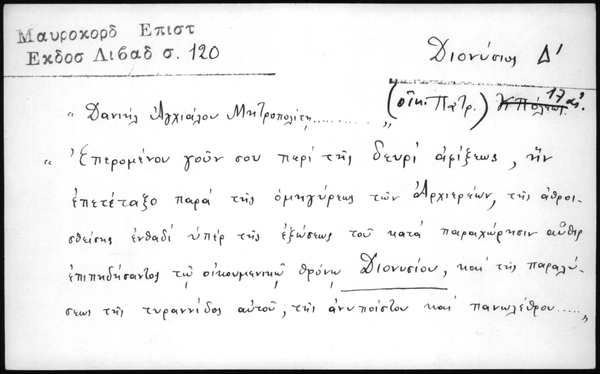 Μαυροκορδ Επιστ
Εκδοσ Λιβαδ σ. 120
Διονύσιος Δ'
(οἰκ. Πατρ.) Κ/Πόλεως. 17 αἰ.
"Δανιὴλ Ἀγχιάλου Μητροπολίτῃ..........."
"Ἐπερομένου γοῦν σου περί τῆς δευρί ἀφίξεως, ἣν
ἐπετέταξο παρά τῆς ὁμηγύρεως τῶν Ἀρχιερέων, τῆς ἀθροι-
σθείσης ἐνθαδί ὑπέρ τῆς ἐξώσεως τοῦ κατά παραχώρησιν αὖθις
ἐπιπηδήσαντος τῷ οἰκουμενικῷ θρόνῳ Διονυσίου, καί τῆς παραλύ-
σεως τῆς τυραννίδος αὐτοῦ, τῆς ἀνυποίστου καί πανωλέθρου....."